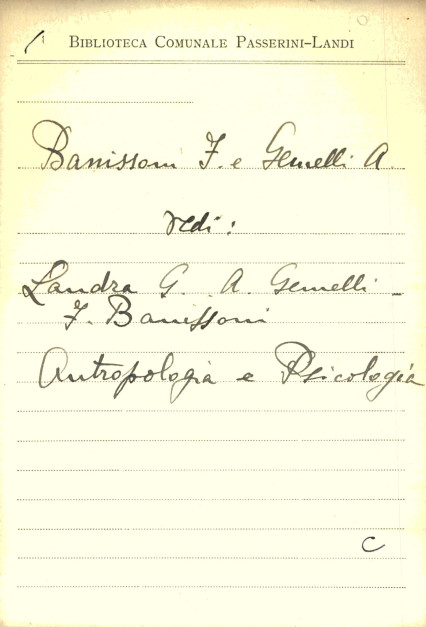 BIBLIOTECA COMUNALE PASSERINI-LANDI
Banissoni F. e Gemelli A.
vedi:
Landra G. A. Gemelli -
F. Banissoni
Antropologia e Psicologia
C